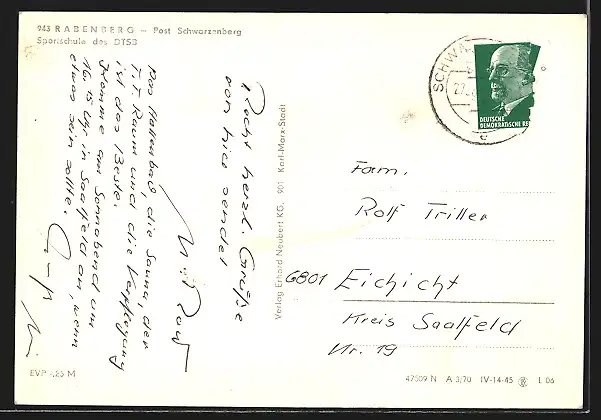 943 RABENBERG – Post Schwarzenberg
Sportschule des DTSB
Recht herzl. Grüße
von hier sendet
Das Hallenbad, die Sauna, der
T.T. Raum und die Verpflegung
ist das Beste.
Komme am Sonnabend um
16.15 Uhr in Saalfeld an, wenn
etwas sein sollte.
Verlag Erhard Neubert KG, 901 Karl-Marx-Stadt
SCHWA
22.
c
DEUTSCHE
DEMOKRATISCHE RE
Fam.
Rolf Triller
6801 Eichicht
Kreis Saalfeld
Nr. 19
EVP -,25 M
47509 N A 3/70 IV-14-45 L 06